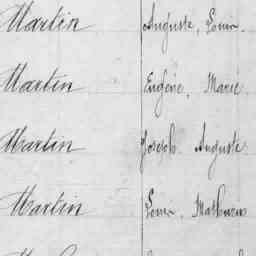 Martin Auguste, Louis.
Martin Eugène, Marie
Martin Joseph Auguste
Martin Louis, Mathurin